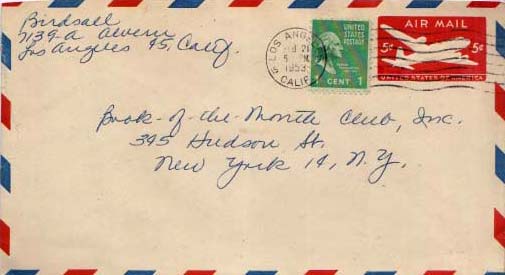 Birdsall
7139-A Alvern
Los Angeles 45, Calif.
LOS ANGELES
CALIF.
5 PM
1953
UNITED
STATES
POSTAGE
1 CENT 1
AIR MAIL
5¢ 5¢
UNITED STATES OF AMERICA
Book-of-the-Month Club, Inc.
345 Hudson St.
New York 14, N.Y.